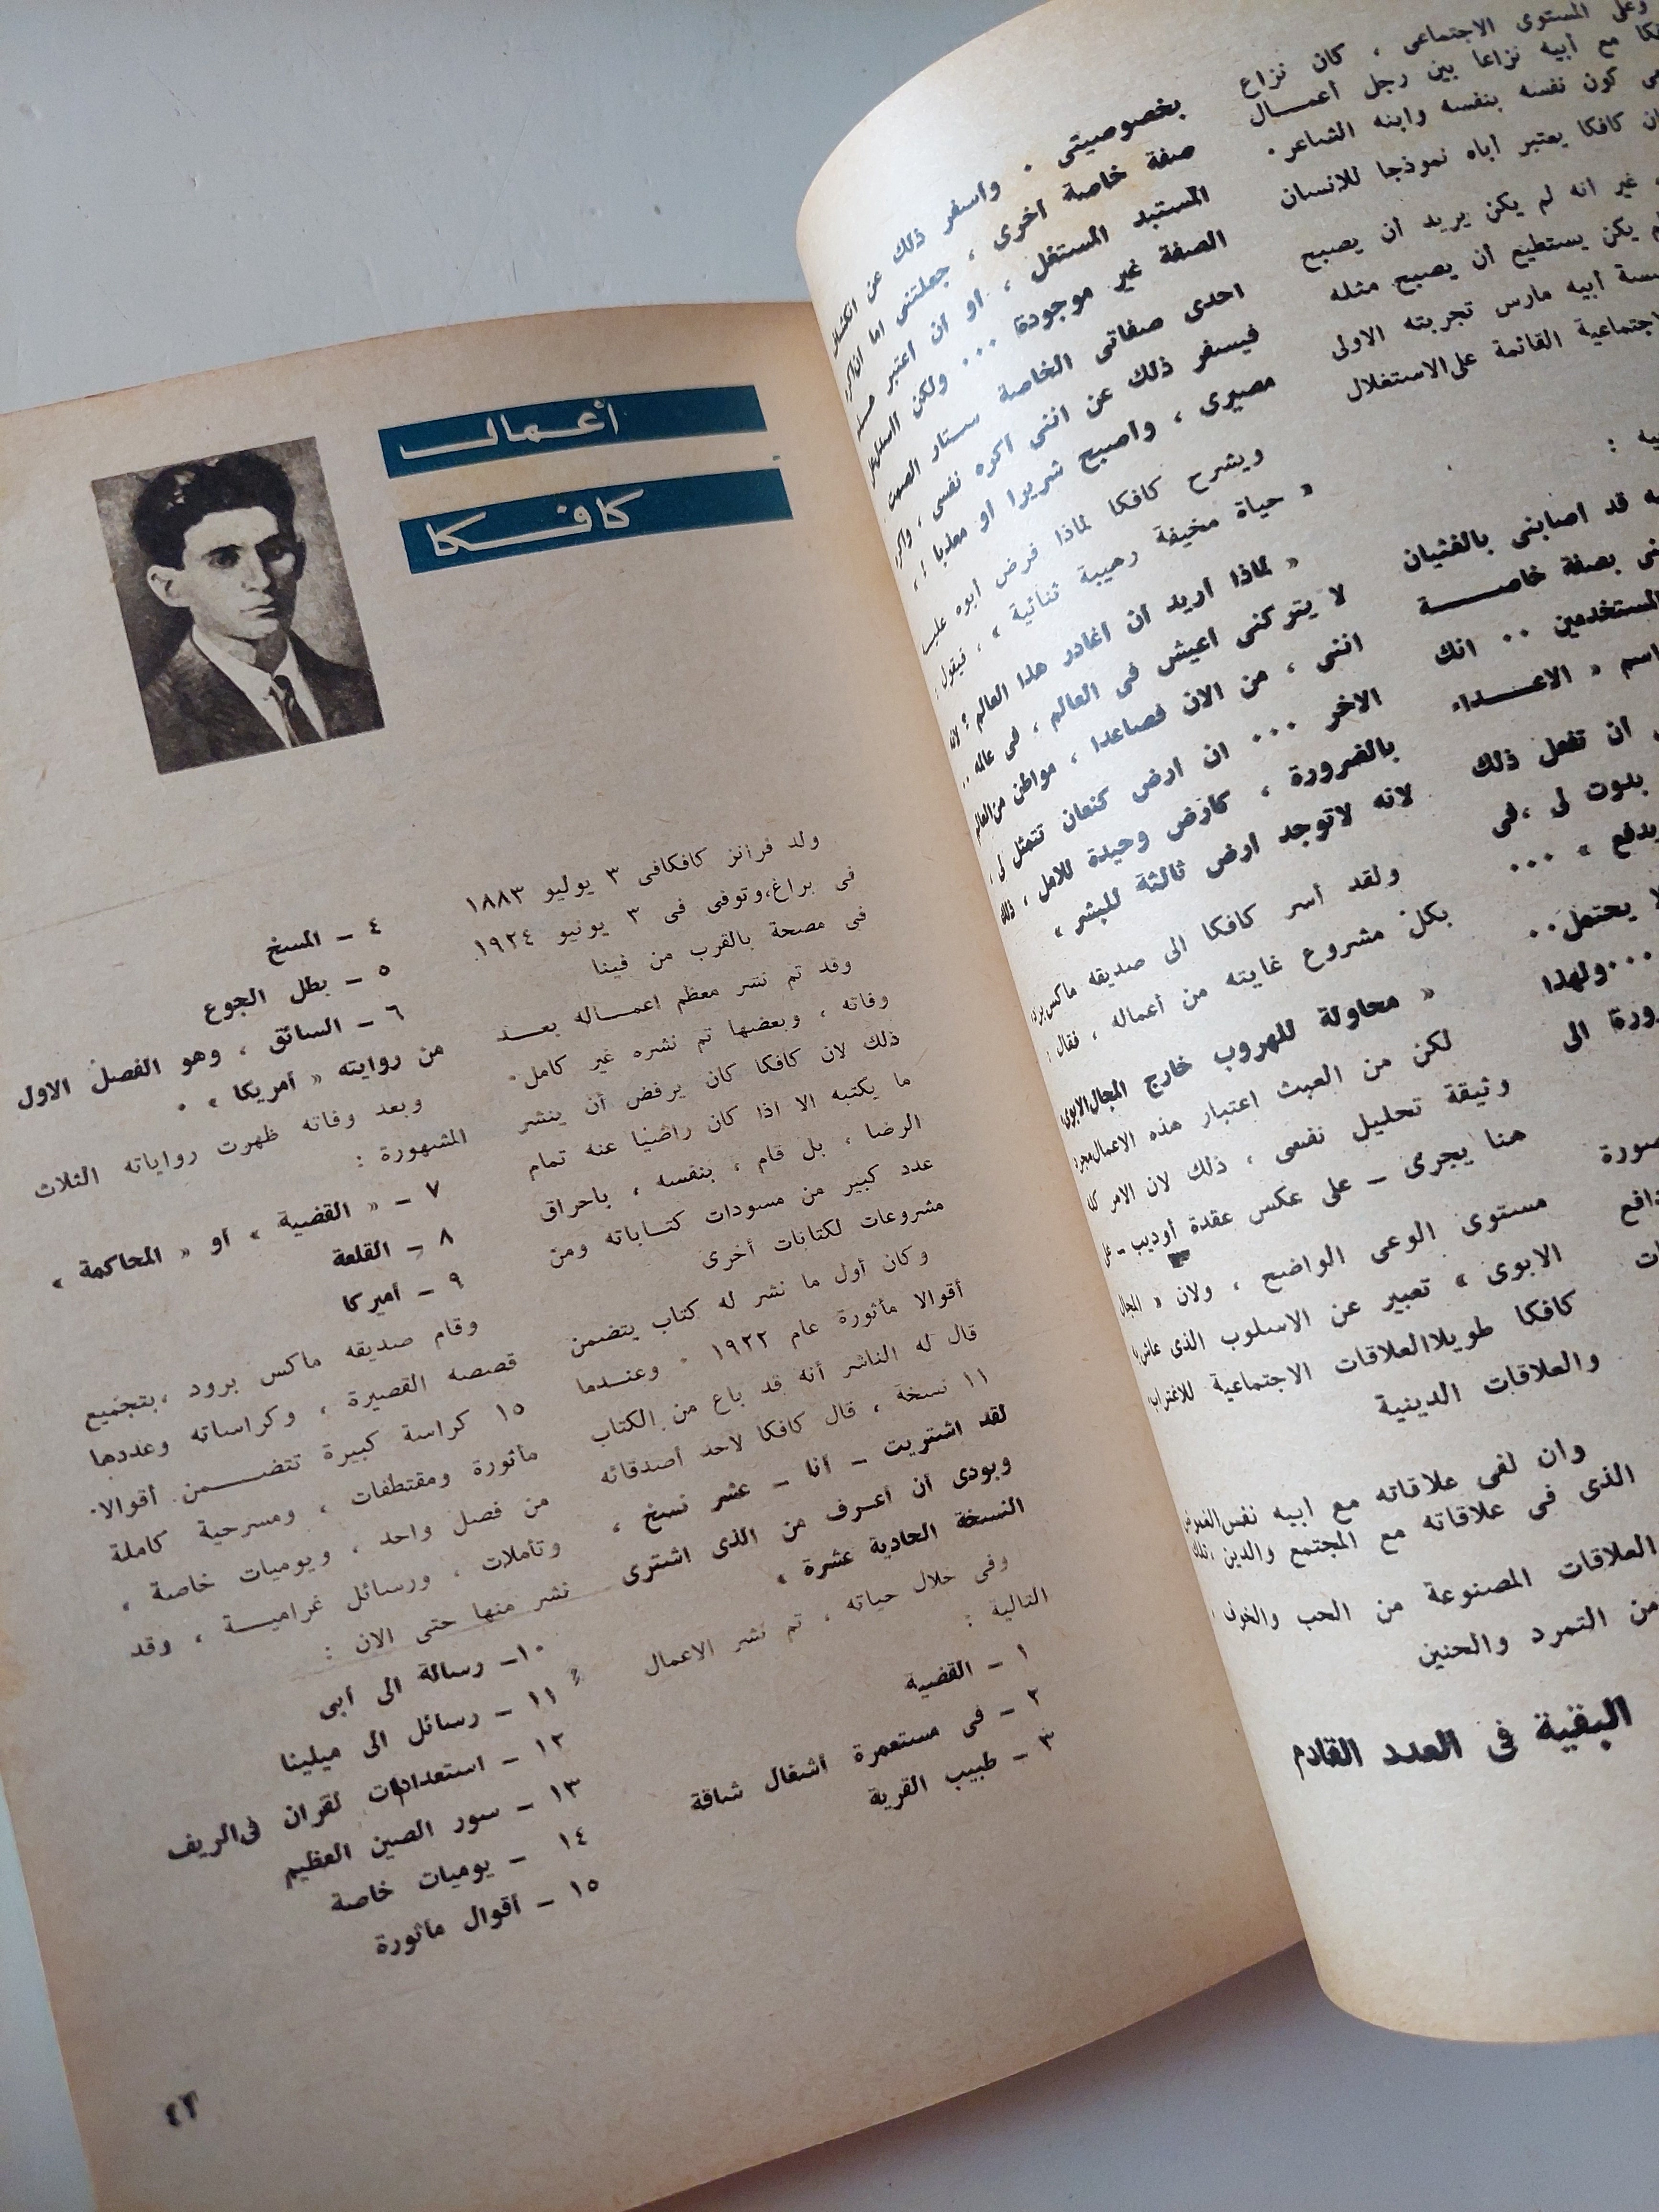 وعلى المستوى الاجتماعى ، كان نزاع
مع أبيه نزاعا بين رجل أعمــال
كون نفسه بنفسه وابنه الشاعر .
كافكا يعتبر أباه نموذجا للانسان
غير انه لم يكن يريد أن يصبح
يكن يستطيع أن يصبح مثله
أبيه مارس تجربته الاولى
القائمة على الاستغلال
قد اصابنى بالغثيان
بصفة خاصــــة
المستخدمين ٠٠ انك
اسم « الاعــــداء
ان تفعل ذلك
بدوت لى ، فى
يدفع » ٠٠٠
يحتمل ٠٠
٠٠٠ ولهذا
الى
بخصوصيتى . واسفر ذلك عن
صفة خاصة أخرى ، جعلتنى اما ان
المستبد المستغل ، أو ان اعتبر
الصفة غير موجودة ٠٠٠ ولكن
احدى صفاتى الخاصة ستار الصمت
فيسفر ذلك عن اننى اكره نفسى ،
مصيرى ، واصبح شريرا او معذبا
ويشرح كافكا لماذا فرض أبوه
« حياة مخيفة رهيبة ثنائية » ، فيقول :
« لماذا اريد ان اغادر هذا العالم ؟
لا يتركنى اعيش فى العالم ، فى عالمه ..
اننى ، من الان فصاعدا ، مواطن من
الاخر ٠٠٠ ان ارض كنعان تتمثل لى ،
بالضرورة ، كارض وحيدة للامل ،
لانه لاتوجد ارض ثالثة للبشر »
ولقد أسر كافكا الى صديقه ماكس برود
بكل مشروع غايته من أعماله ، فقال :
« محاولة للهروب خارج المجال الابوى
لكن من العبث اعتبار هذه الاعمال مجرد
وثيقة تحليل نفسى ، ذلك لان الامر كله
هنا يجرى ــ على عكس عقدة أوديب ــ على
مستوى الوعى الواضح ، ولان « المجال
الابوى » تعبير عن الاسلوب الذى عاش
كافكا طويلا العلاقات الاجتماعية للاغتراب
والعلاقات الدينية
وان لفى علاقاته مع ابيه نفس
الذى فى علاقاته مع المجتمع والدين ، تلك
العلاقات المصنوعة من الحب والخوف ،
من التمرد والحنين
البقية فى العدد القادم
أعـمالـــ
كافــكا
ولد فرانز كافكافى ٣ يوليو ١٨٨٣
فى براغ،وتوفى فى ٣ يونيو ١٩٢٤
فى مصحة بالقرب من فينا
وقد تم نشر معظم اعمــاله بعــد
وفاته ، وبعضها تم نشره غير كامل .
ذلك لان كافكا كان يرفض أن ينشر
ما يكتبه الا اذا كان راضيا عنه تمام
الرضا ، بل قام ، بنفسه ، باحراق
عدد كبير من مسودات كتــاباته ومن
مشروعات لكتابات أخرى
وكان أول ما نشر له كتاب يتضمن
أقوالا مأثورة عام ١٩٢٢ . وعنــدما
قال له الناشر أنه قد باع من الكتاب
١١ نسخة ، قال كافكا لأحد أصدقائه
لقد اشتريت ــ أنا ــ عشر نسخ ،
وبودى أن أعـرف من الذى اشترى
النسخة الحادية عشرة »
وفى خلال حياته ، تم نشر الاعمال
التالية :
١ ــ القضية
٢ ــ فى مستعمرة أشغال شاقة
٣ ــ طبيب القرية
٤ ــ المسخ
٥ ــ بطل الجوع
٦ ــ السائق ، وهو الفصل الاول
من روايته « أمريكا » .
وبعد وفاته ظهرت رواياته الثلاث
المشهورة :
٧ ــ « القضية » أو « المحاكمة »
٨ ــ القلعة
٩ ــ أميركا
وقام صديقه ماكس برود ،بتجميع
قصصه القصيرة ، وكراساته وعددها
١٥ كراسة كبيرة تتضــــمن أقوالا
مأثورة ومقتطفات ، ومسرحية كاملة
من فصل واحد ، ويوميات خاصة ،
وتأملات ، ورسائل غراميــة ، وقد
نشر منها حتى الان :
١٠ــ رسالة الى أبى
١١ ــ رسائل الى ميلينا
١٢ ــ استعدادات لقران فى الريف
١٣ ــ سور الصين العظيم
١٤ ــ يوميات خاصة
١٥ ــ أقوال مأثورة
٤٣